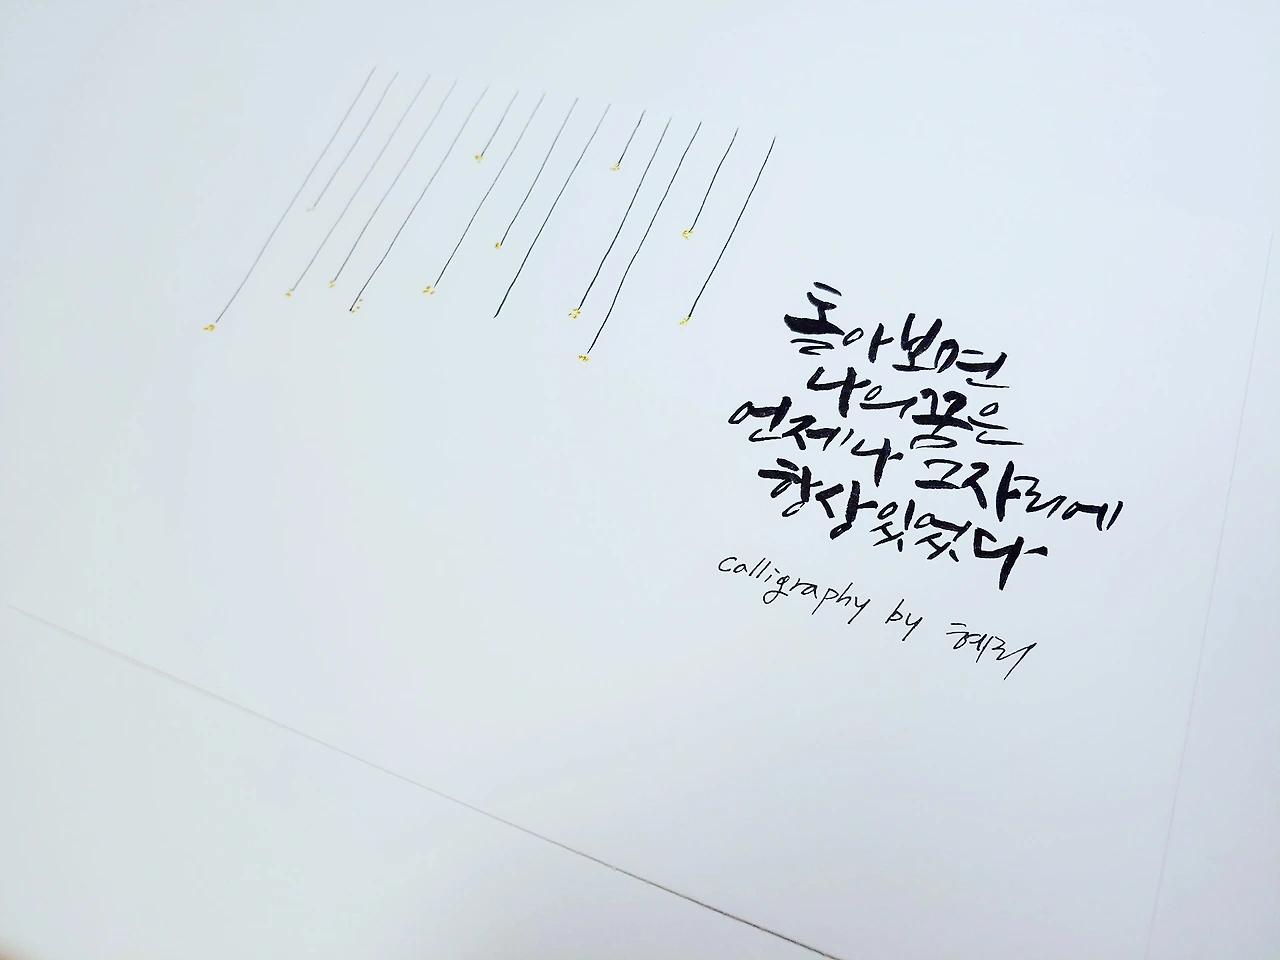 돌아보면
나의 꿈은
언제나 그자리에
항상있었다
calligraphy by 혜리